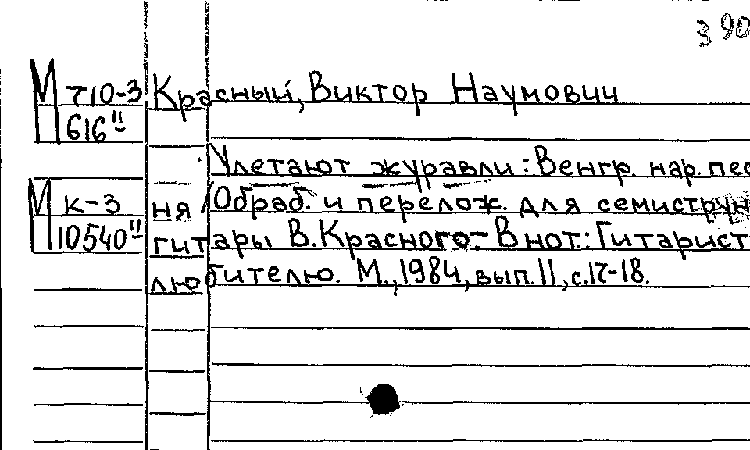 3 90
М 710-3 Красный, Виктор Наумович
616"
Улетают журавли: Венгр. нар. пес
М К-3 ня /Обраб. и перелож. для семиструн
10540" гитары В.Красного.- В нот.: Гитарист
любителю. М., 1984, вып.11, с.17-18.